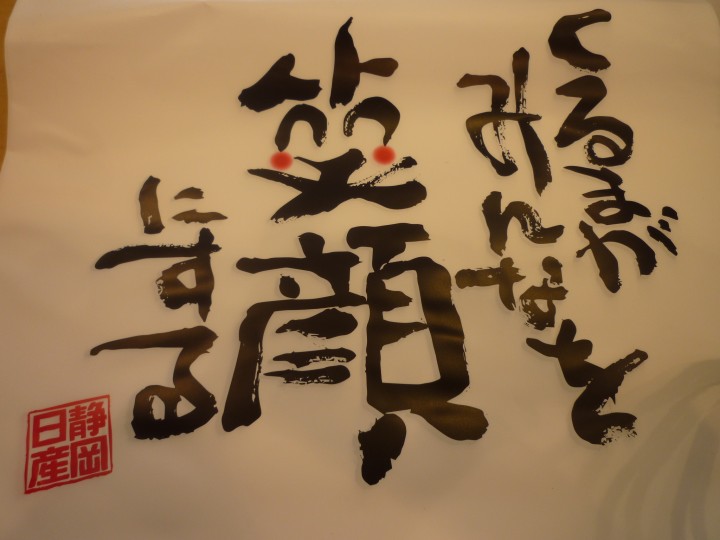 くるまが
みんなを
笑顔
にする
静岡
日産